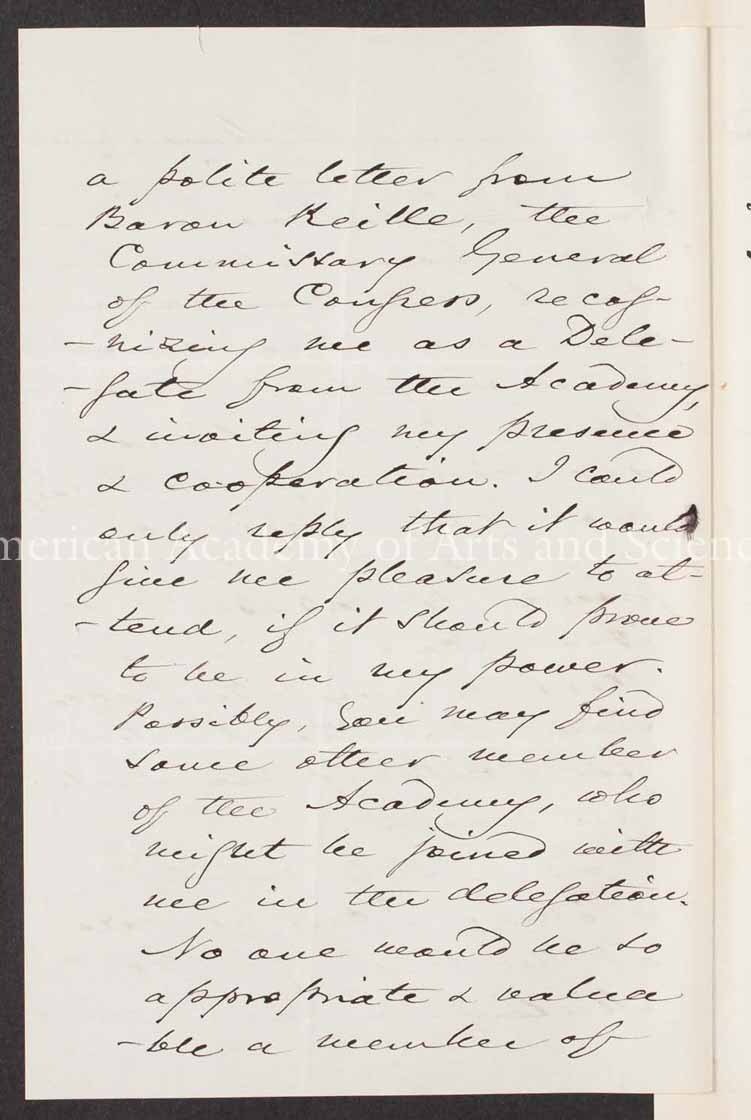 a polite letter from
Baron Reille, the
Commissary General
of the Congress, recog-
-nizing me as a Dele-
-gate from the Academy,
& inviting my presence
& cooperation. I could
only reply that it would
give me pleasure to at-
-tend, if it should prove
to be in my power.
Possibly, you may find
some other member
of the Academy, who
might be joined with
me in the delegation.
No one would be so
appropriate & valua
-ble a member of
American Academy of Arts and Scienc